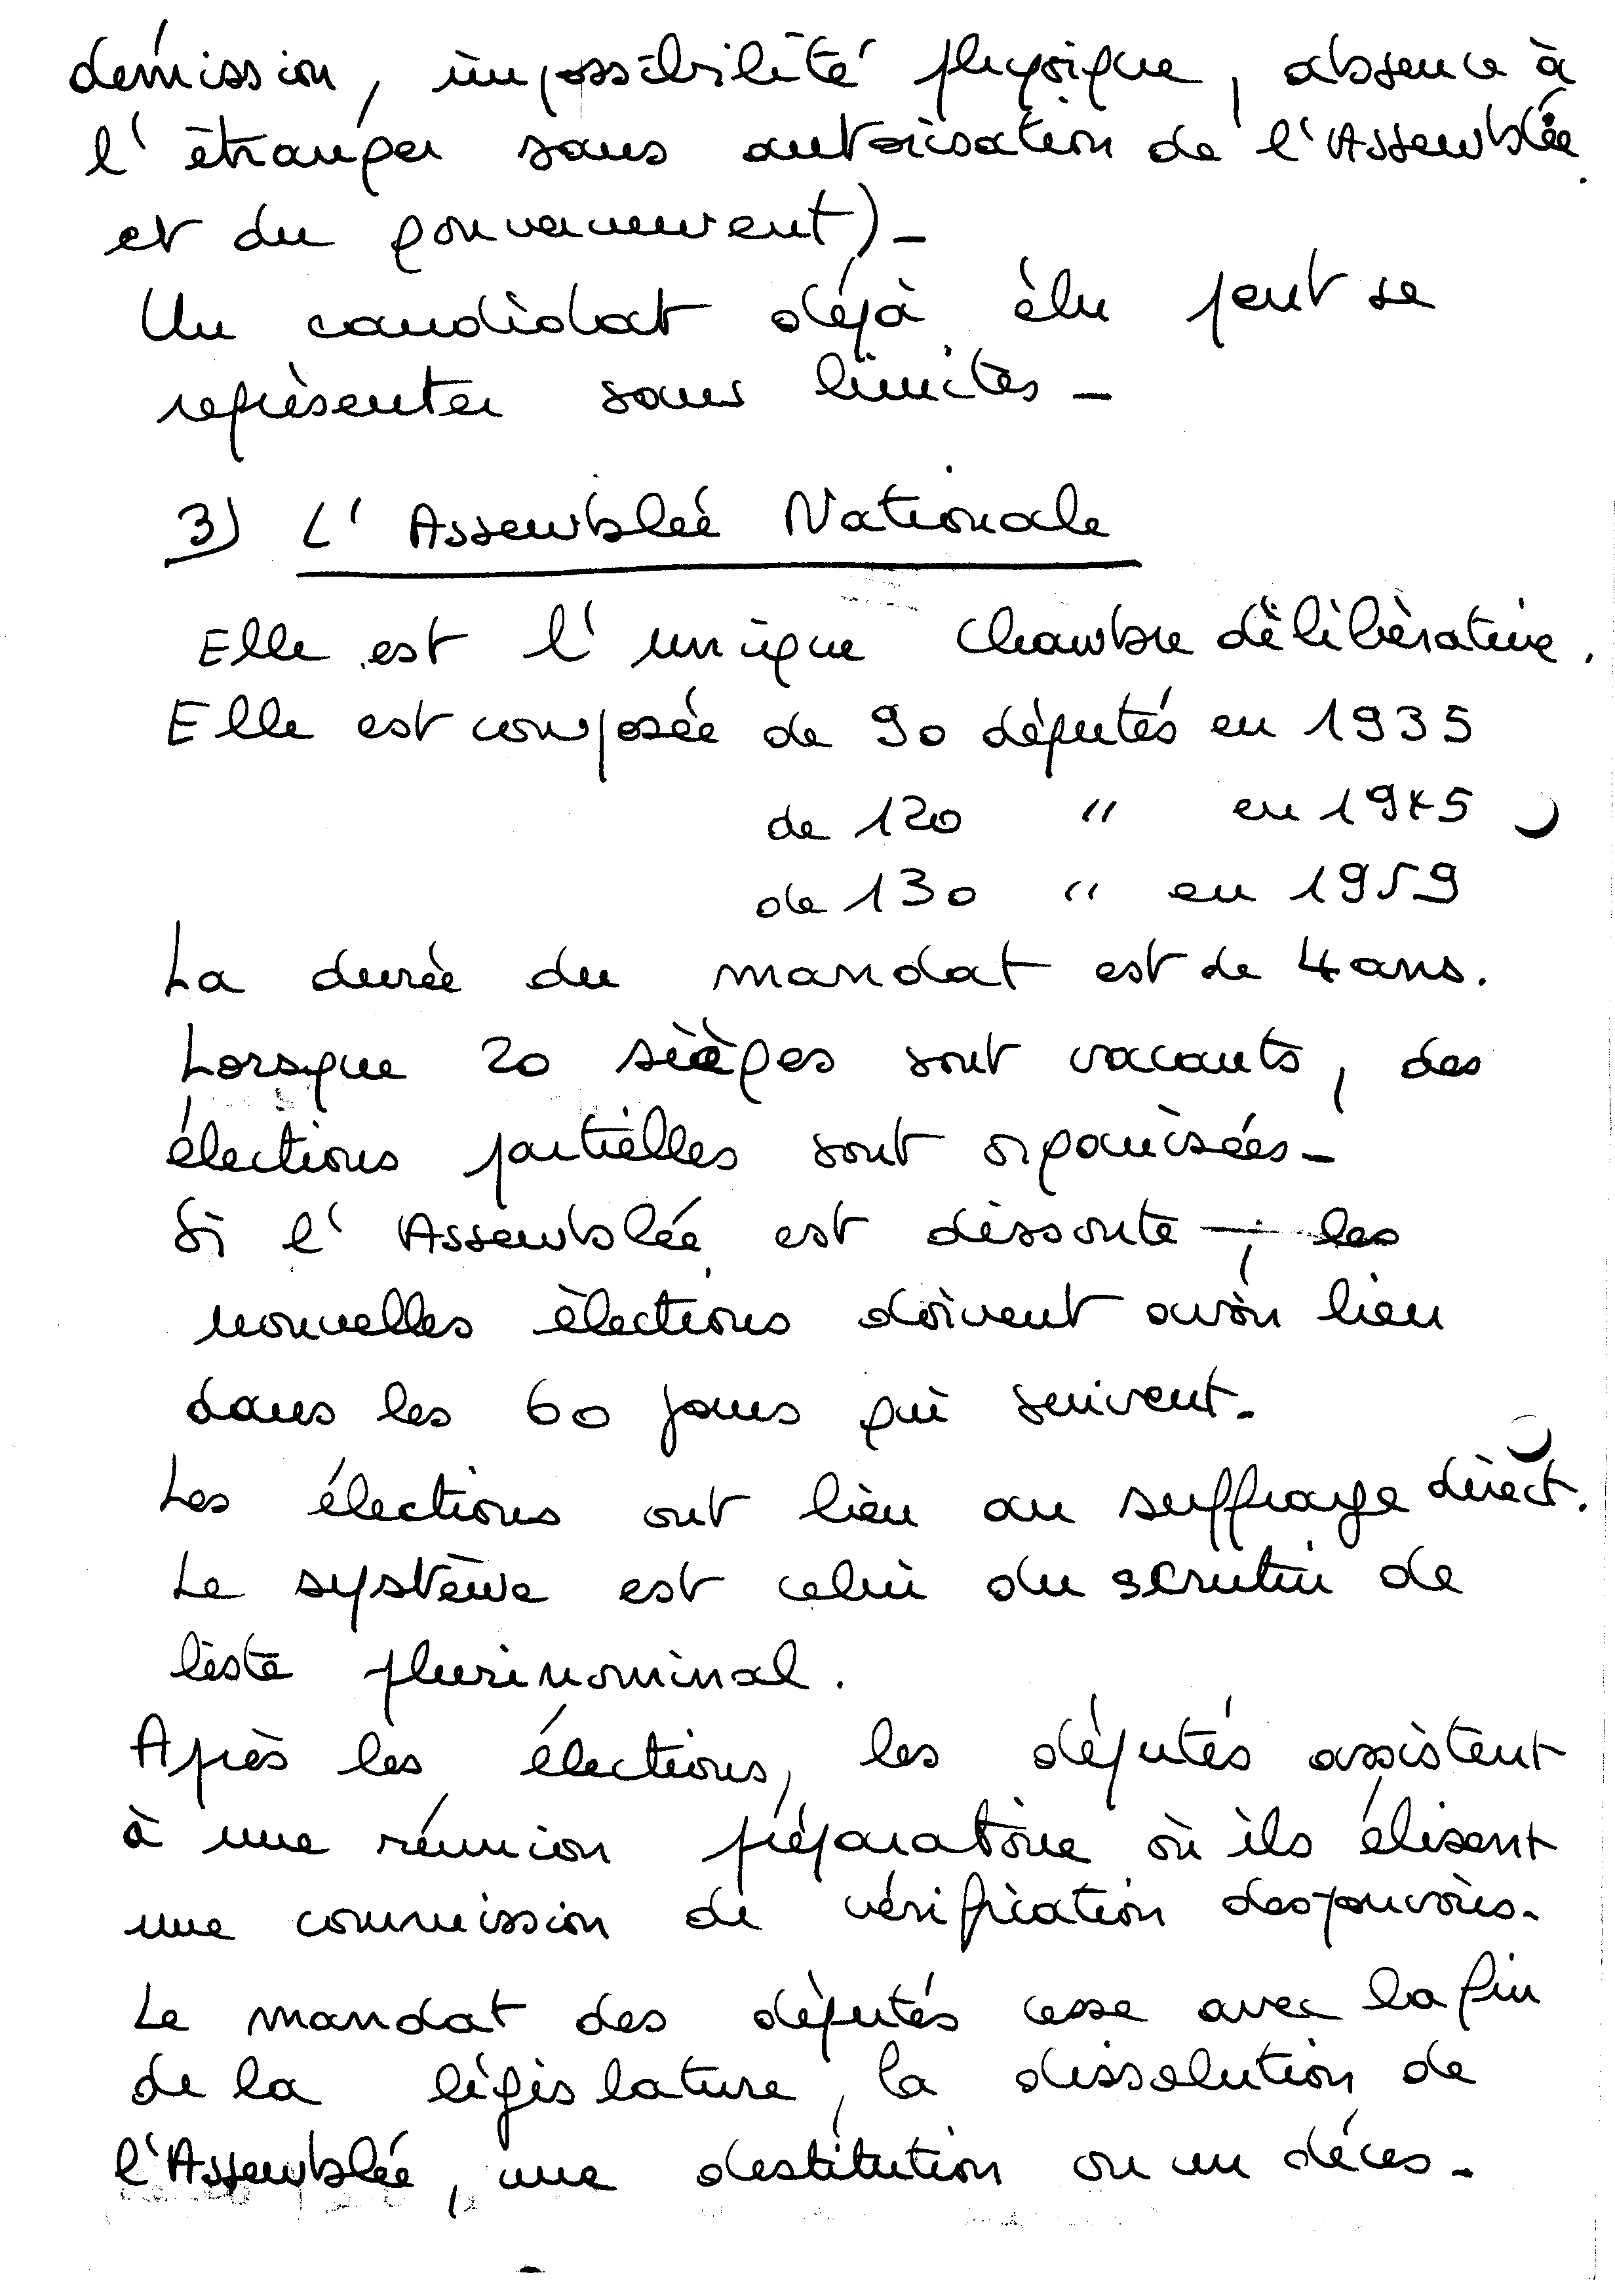 démission, impossibilité physique, absence à
l'étranger sans autorisation de l'Assemblée
et du gouvernement)-
Un candidat déjà élu peut se
représenter sans limites-
3) L'Assemblée Nationale
Elle est l'unique Chambre délibérative.
Elle est composée de 90 députés en 1935
de 120 " en 1945
de 130 " en 1959
La durée du mandat est de 4 ans.
Lorsque 20 sièges sont vacants, des
élections partielles sont organisées-
Si l'Assemblée est dissoute -, les
nouvelles élections doivent avoir lieu
dans les 60 jours qui suivent-
Les élections ont lieu au suffrage direct.
Le système est celui du scrutin de
liste plurinominal.
Après les élections, les députés assistent
à une réunion préparatoire où ils élisent
une commission de vérification des pouvoirs-
Le mandat des députés cesse avec la fin
de la législature, la dissolution de
l'Assemblée, une destitution ou un décès-